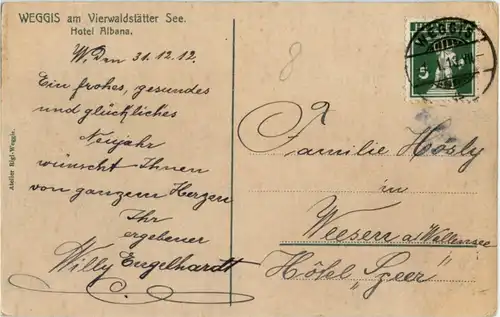 WEGGIS am Vierwaldstätter See.
Hotel Albana.
W. Den 31.12.12.
Ein frohes, gesundes
und glückliches
Neujahr
wünscht Ihnen
von ganzem Herzen
Ihr
ergebener
Willy Engelhardt
Atelier Rigi-Weggis.
8
WEGGIS
5
Familie Hösly
in
Weesen a/Wallensee
Hôtel "Speer"